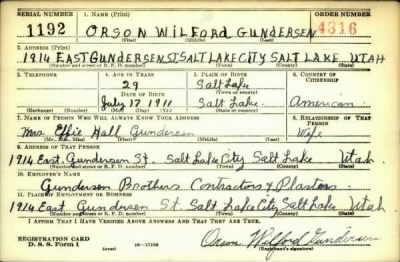 SERIAL NUMBER 1. NAME (Print) ORDER NUMBER
1192 ORSON WILFORD GUNDERSEN 4616
2. ADDRESS (Print)
1914 EAST GUNDERSEN ST. SALT LAKE CITY SALT LAKE UTAH
(Number and street or R. F. D. number) (Town) (County) (State)
3. TELEPHONE 4. AGE IN YEARS 5. PLACE OF BIRTH 6. COUNTRY OF CITIZENSHIP
29 Salt Lake
DATE OF BIRTH (Town or county)
July 17 1911 Salt Lake American
(Exchange) (Number) (Mo.) (Day) (Yr.) (State or country)
7. NAME OF PERSON WHO WILL ALWAYS KNOW YOUR ADDRESS 8. RELATIONSHIP OF THAT PERSON
Mrs. Effie Hall Gundersen Wife
(Mr., Mrs., Miss) (First) (Middle) (Last)
9. ADDRESS OF THAT PERSON
1914 East Gundersen St. Salt Lake City Salt Lake Utah.
(Number and street or R. F. D. number) (Town) (County) (State)
10. EMPLOYER'S NAME
Gundersen Brothers Contractors &
11. PLACE OF EMPLOYMENT OR BUSINESS
1914 East Gundersen St. Salt Lake City Salt Lake Utah
(Number and street or R. F. D. number) (Town) (County) (State)
I AFFIRM THAT I HAVE VERIFIED ABOVE ANSWERS AND THAT THEY ARE TRUE.
REGISTRATION CARD
D. S. S. Form 1 Orson Wilford Gundersen
(Registrant's signature)